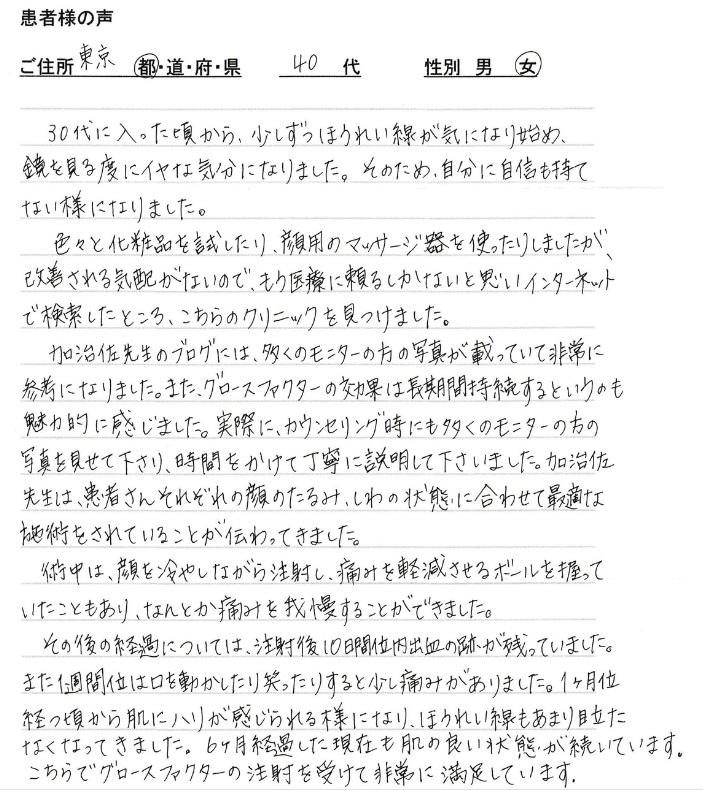 患者様の声
ご住所 東京 都・道・府・県 40 代 性別 男 女
30代に入った頃から、少しずつほうれい線が気になり始め、
鏡を見る度にイヤな気分になりました。そのため、自分に自信も持て
ない様になりました。
色々と化粧品を試したり、顔用のマッサージ器を使ったりしましたが、
改善される気配がないので、もう医療に頼るしかないと思いインターネット
で検索したところ、こちらのクリニックを見つけました。
加治佐先生のブログには、多くのモニターの方の写真が載っていて非常に
参考になりました。また、グロースファクターの効果は長期間持続するというのも
魅力的に感じました。実際に、カウンセリング時にも多くのモニターの方の
写真を見せて下さり、時間をかけて丁寧に説明して下さいました。加治佐
先生は、患者さんそれぞれの顔のたるみ、しわの状態に合わせて最適な
施術をされていることが伝わってきました。
術中は、顔を冷やしながら注射し、痛みを軽減させるボールを握って
いたこともあり、なんとか痛みを我慢することができました。
その後の経過については、注射後10日間位内出血の跡が残っていました。
また1週間位は口を動かしたり笑ったりすると少し痛みがありました。1ヶ月位
経つ頃から肌にハリが感じられる様になり、ほうれい線もあまり目立た
なくなってきました。6ヶ月経過した現在も肌の良い状態が続いています。
こちらでグロースファクターの注射を受けて非常に満足しています.